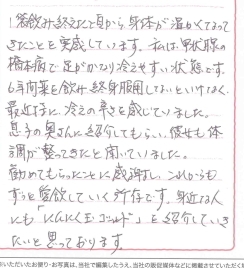 1袋飲み終えた頃から、身体が温かくなって
きたことを実感しています。私は、甲状腺の
橋本病で足がかなり冷えやすい状態です。
6年間薬を飲み、終身服用しないといけなく、
最近特に、冷えの辛さを感じていました。
息子の奥さんに紹介してもらい、彼女も体
調が整ってきたと聞いていました。
勧めてもらったことに感謝し、これからも
ずっと愛飲していく所存です。身近な人
にも「にんにく玉ゴールド」を紹介していき
たいと思っております。
いただいたお便り・お写真は、当社で編集したうえ、当社の販促媒体などに掲載させていただく